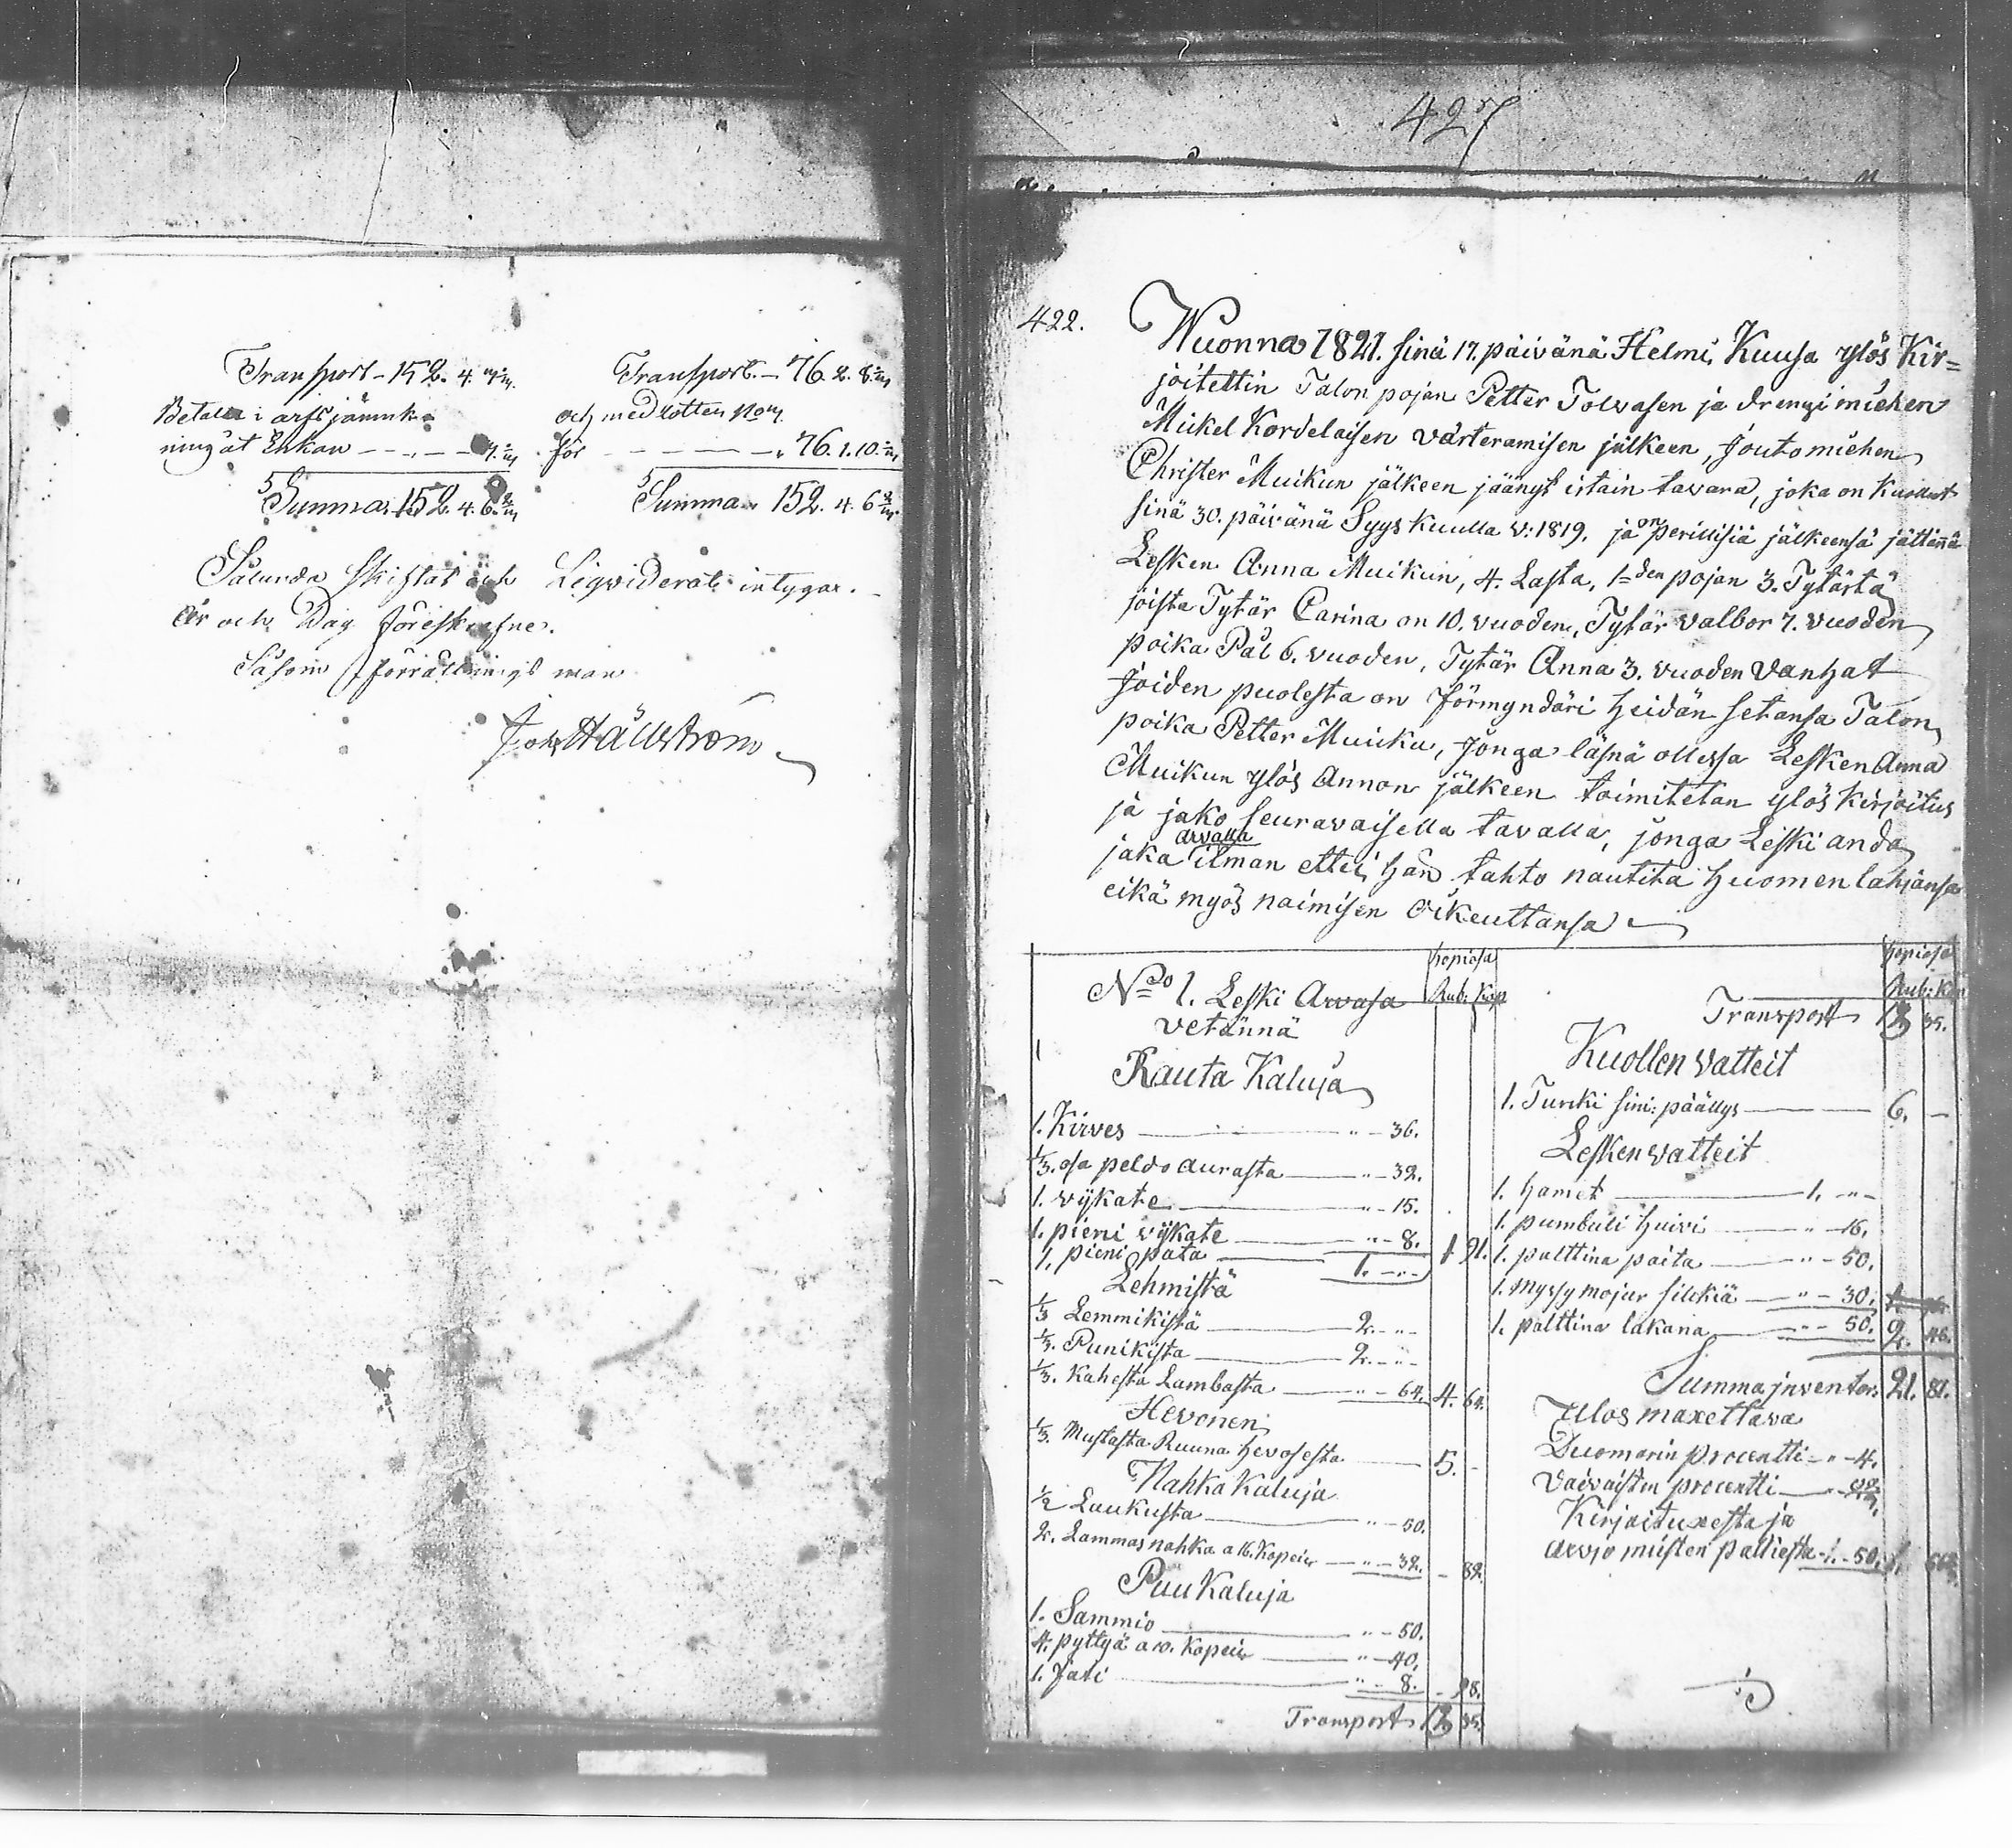 Transport - 152. 4.
Betalar i arfsjämnk-
ning åt Enkan
Summa 152. 4. 6.
Transport. - 76. 2. 8.
och medlotten
för - - - 76. 1. 10.
Summa 152. 4. 6
Sålunda skiftat och Liqviderat intygar.
År och Dag föreskrefne.
Såsom förrättnings man
Joh Hällström
427
422.
Wuonna 1821. sinä 17. päivänä Helmi Kuusa ylös Kir=
joitettin Talon pojan Petter Tolvasen ja drengi miehen
Mickel Kordelaisen värteramisen jälkeen, Jouto miehen
Christer Muikun jälkeen jäänyt irtain tavara, joka on Kuollut
sinä 30. päivänä Syys Kuulla v: 1819. ja on perillisiä jälkeensä jättännä
Lesken Anna Muikun, 4. Lasta, 1=den pojan 3. Tytärtä
joista Tytär Carina on 10. vuoden, Tytär Valbor 7. vuoden
poika Pål 6. vuoden, Tytär Anna 3. vuoden vanhat
Joiden puolesta on Förmyndäri heidän setänsä Talon
poika Petter Muikku, Jonga läsnä ollessa Lesken Anna
Muikun ylös Annon jälkeen toimitetan ylös kirjoitus
ja jako seuravaisella tavalla, jonga Leski anda
arvalla
jaka ilman ettei hän tahto nautita huomen lahjansa
eikä myös naimisen Oikeuttansa
hopiasa
Rub: Kop
No 1. Leski Arvasa
vetännä
Rauta Kaluja
1. Kirves " - 36.
1/3. osa peldo aurasta " - 32.
1. vijkate " - 15.
1. pieni vijkate " - 8.
1. pieni pata 1. - " - 1 91.
Lehmistä
1/3 Lemmikistä 2. - " -
1/3. Punikista 2. - " -
1/3. Kahesta Lambasta " - 64. 4. 64.
Hevonen
1/3. Mustasta Ruuna hevosesta 5. -
Nahka Kaluja
1/2 Laukusta " - 50.
2. Lammas nahka a 16. Kopeik " - 32. - 82.
Puu Kaluja
1. Sammio " - 50.
4. pyttyä a 10. Kopeik " - 40.
1. Jati " - 8. - 98.
Transport 13 35.
hopiasa
Rub: Kop
Transport 13 35.
Kuollen vatteit
1. Turcki sini: päällys 6. -
Lesken vatteit
1. hamet 1. " -
1. pumbuli huivi " - 16.
1. palttina paita " - 50.
1. myssy mojur silckiä " - 30.
1. palttina lakana " - 50. 2. 46.
Summa inventar: 21. 81.
Ulos maxettava
Duomarin procentti " - 4.
Vaivaisten procentti
Kirjoituxesta ja
arvjo miesten palkiesta 1. - 50.